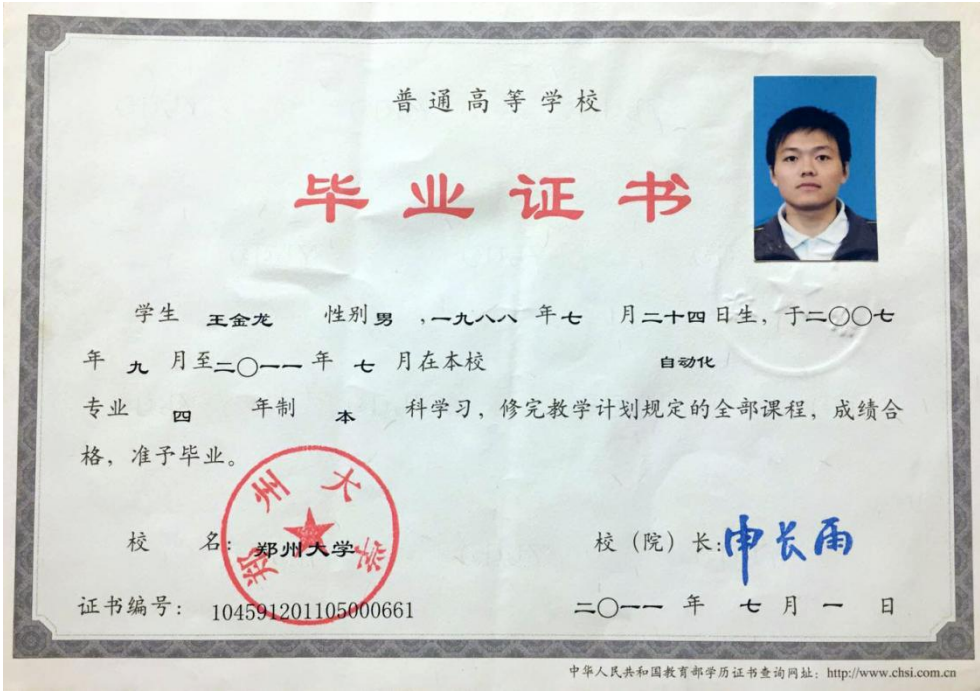 普通高等学校
毕业证书
学生 王金龙 性别男，一九八八年七月二十四日生，于二〇〇七
年九月至二〇一一年七月在本校 自动化
专业 四 年制 本 科学习，修完教学计划规定的全部课程，成绩合
格，准予毕业。
郑州大学
校 名：郑州大学 校（院）长：申长雨
证书编号：104591201105000661 二〇一一年 七月一日
中华人民共和国教育部学历证书查询网址：http://www.chsi.com.cn